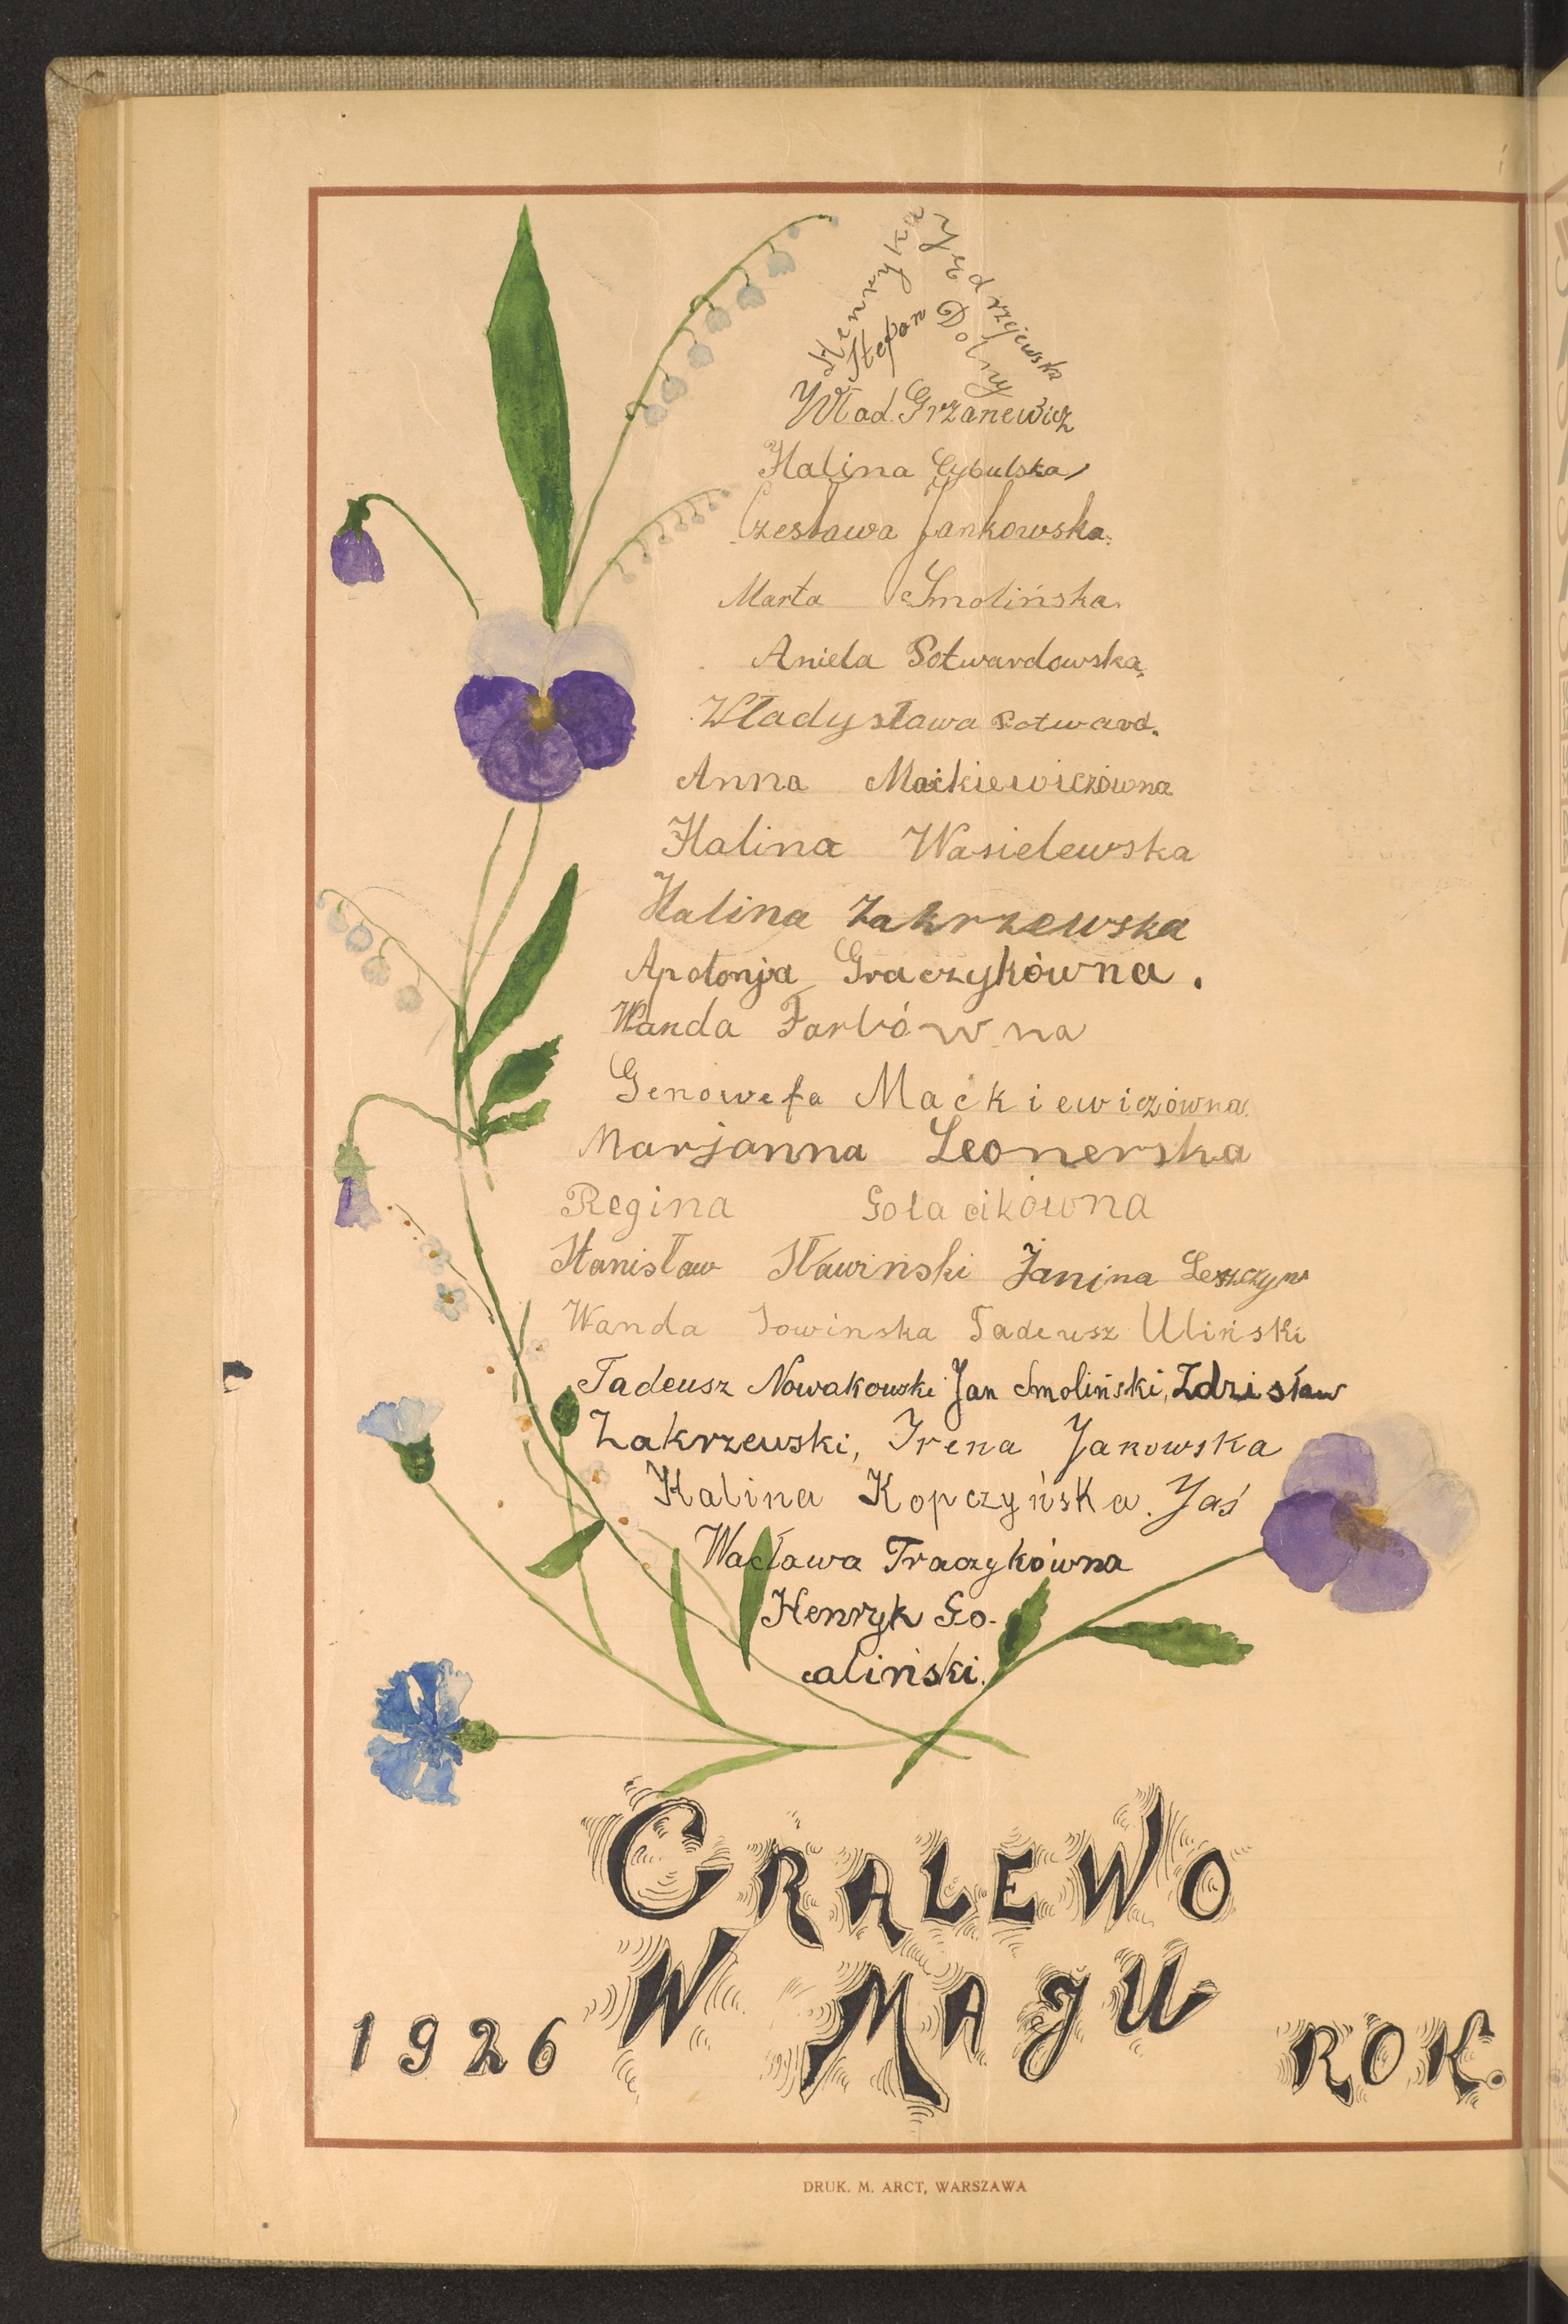 Henryka Jędrzejewska
Stefan Dolny
Wład. Grzanewicz
Halina Cybulska
Czesława Jankowska.
Marta Smolińska.
Aniela Potwardowska.
Władysława Potward.
Anna Maćkiewiczówna
Halina Wasielewska
Halina Zakrzewska
Apolonja Graczykówna.
Wanda Farbówna
Genowefa Maćkiewiczówna.
Marjanna Leonerska
Regina
Stanisław Sławiński Janina Leszczyń
Wanda Sowinska Tadeusz Uliński
Tadeusz Nowakowski Jan Smoliński, Zdzisław
Zakrzewski, Irena Janowska
Halina Kopczyńska. Jaś
Wacława Traczykówna
Henryk Go-
aliński.
CRALEWO
W MAJU
1926 ROK.
DRUK. M. ARCT, WARSZAWA